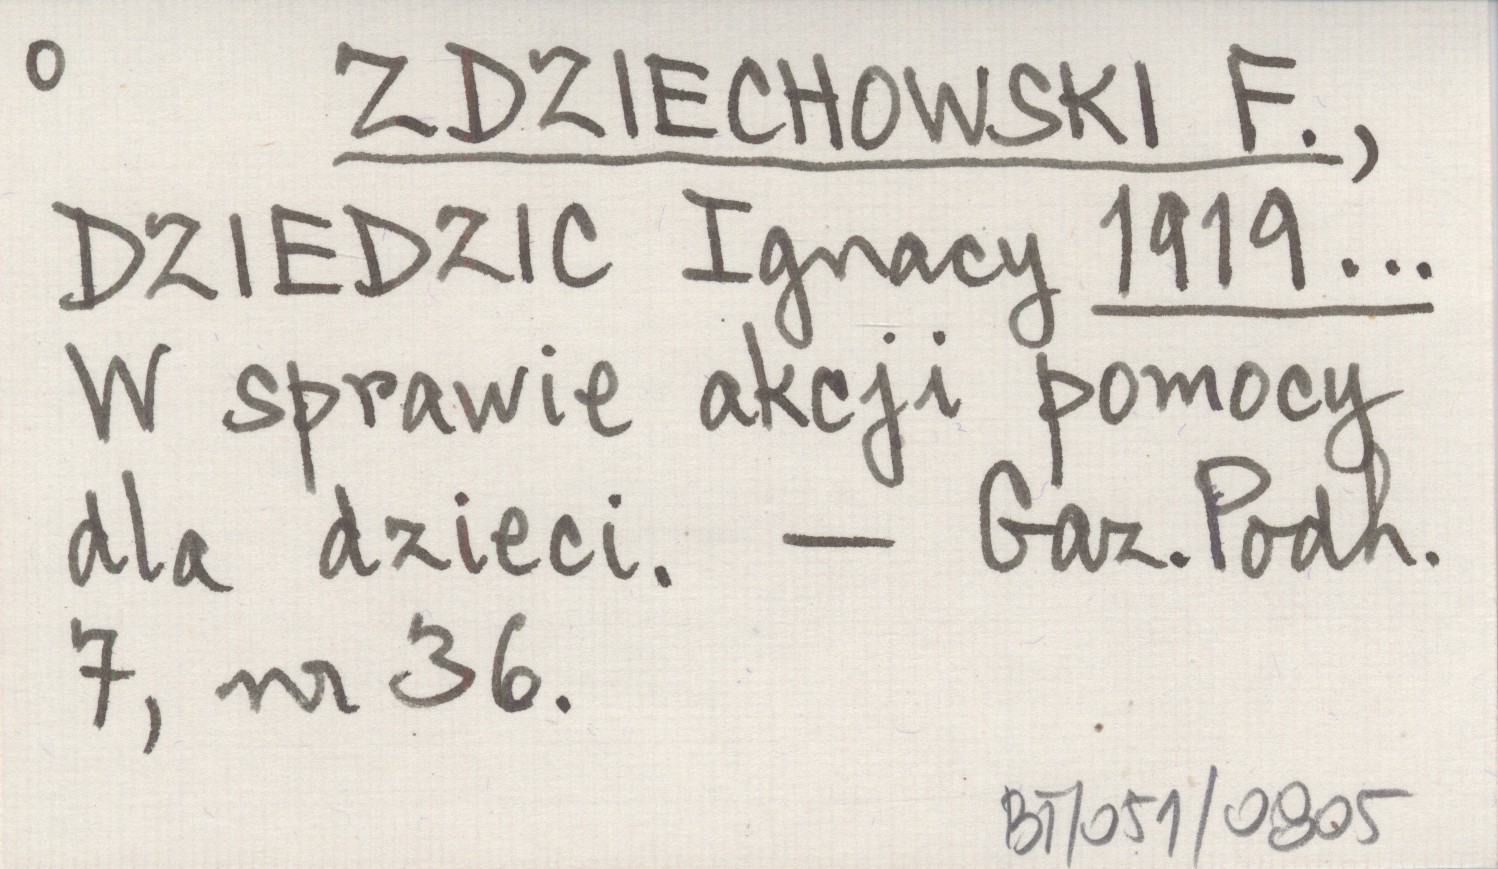 o ZDZIECHOWSKI F.,
DZIEDZIC Ignacy 1919...
W sprawie akcji pomocy
dla dzieci. — Gaz. Podh.
7, nr 36.
BT/051/0805